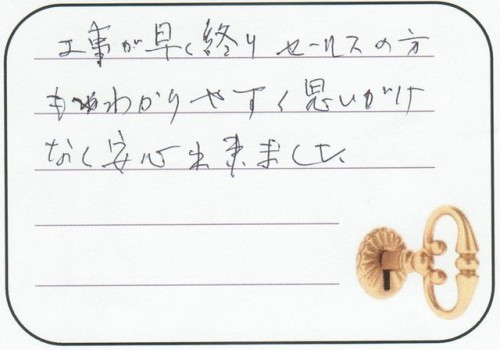 工事が早く終り セールスの方
もわかりやすく思いがけ
なく安心出来ました